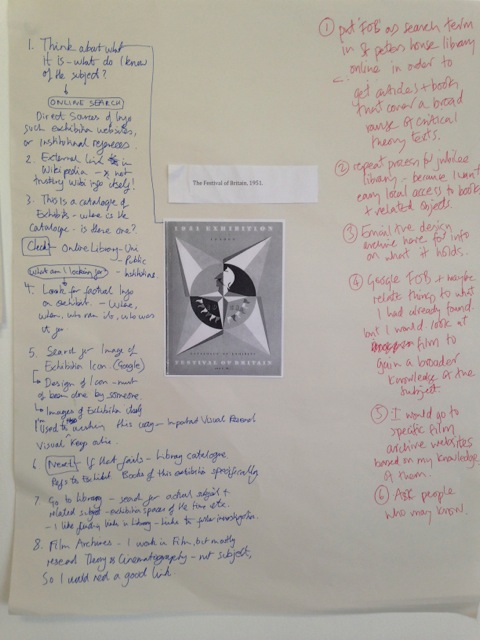 1. Think about what
it is - what do I know
of the subject?
ONLINE SEARCH
Direct Sources of Info
such Exhibition websites,
or institutional
2. External link in
Wikipedia - not
trusting Wiki info itself!
3. This is a catalogue of
Exhibits - where is the
Catalogue - is there one?
Check - Online Library - Uni
- Public
- Institutions.
What am I looking for
4. Look for factual Info
on Exhibit. - Where,
when, who ran it, who was
it for
5. Search for Image of
Exhibition Icon (Google)
Design of Icon - must
of been done by someone.
Images of Exhibition
Used to working this way - Important Visual Research
Visual Keys
6. Next - If that fails - Library catalogue
Refs to Exhibit Books of this exhibition specifically
7. Go to Library - search for actual subject +
related subject - exhibition spaces of the time etc.
- I like finding links in Library - links to further investigation.
8. Film Archives - I work in Film, but mostly
research Theory & Cinematography - not subjects,
So I would need a good link
The Festival of Britain, 1951.
1951 EXHIBITION
LONDON
FESTIVAL OF BRITAIN
1 put 'FOB' as search term
in St peters house library
online in order to
get articles + books
that cover a broad
range of critical
theory texts.
2 repeat process for jubilee
library - because I want
easy local access to books
+ related objects.
3 Email the design
archive here for info
on what it holds.
4 Google FOB + maybe
relate things to what
I had already found.
but I would look at
film to
gain a broader
knowledge of the
subject.
5 I would go to
specific film
archive websites
based on my knowledge
of them.
6 Ask people
who may know.